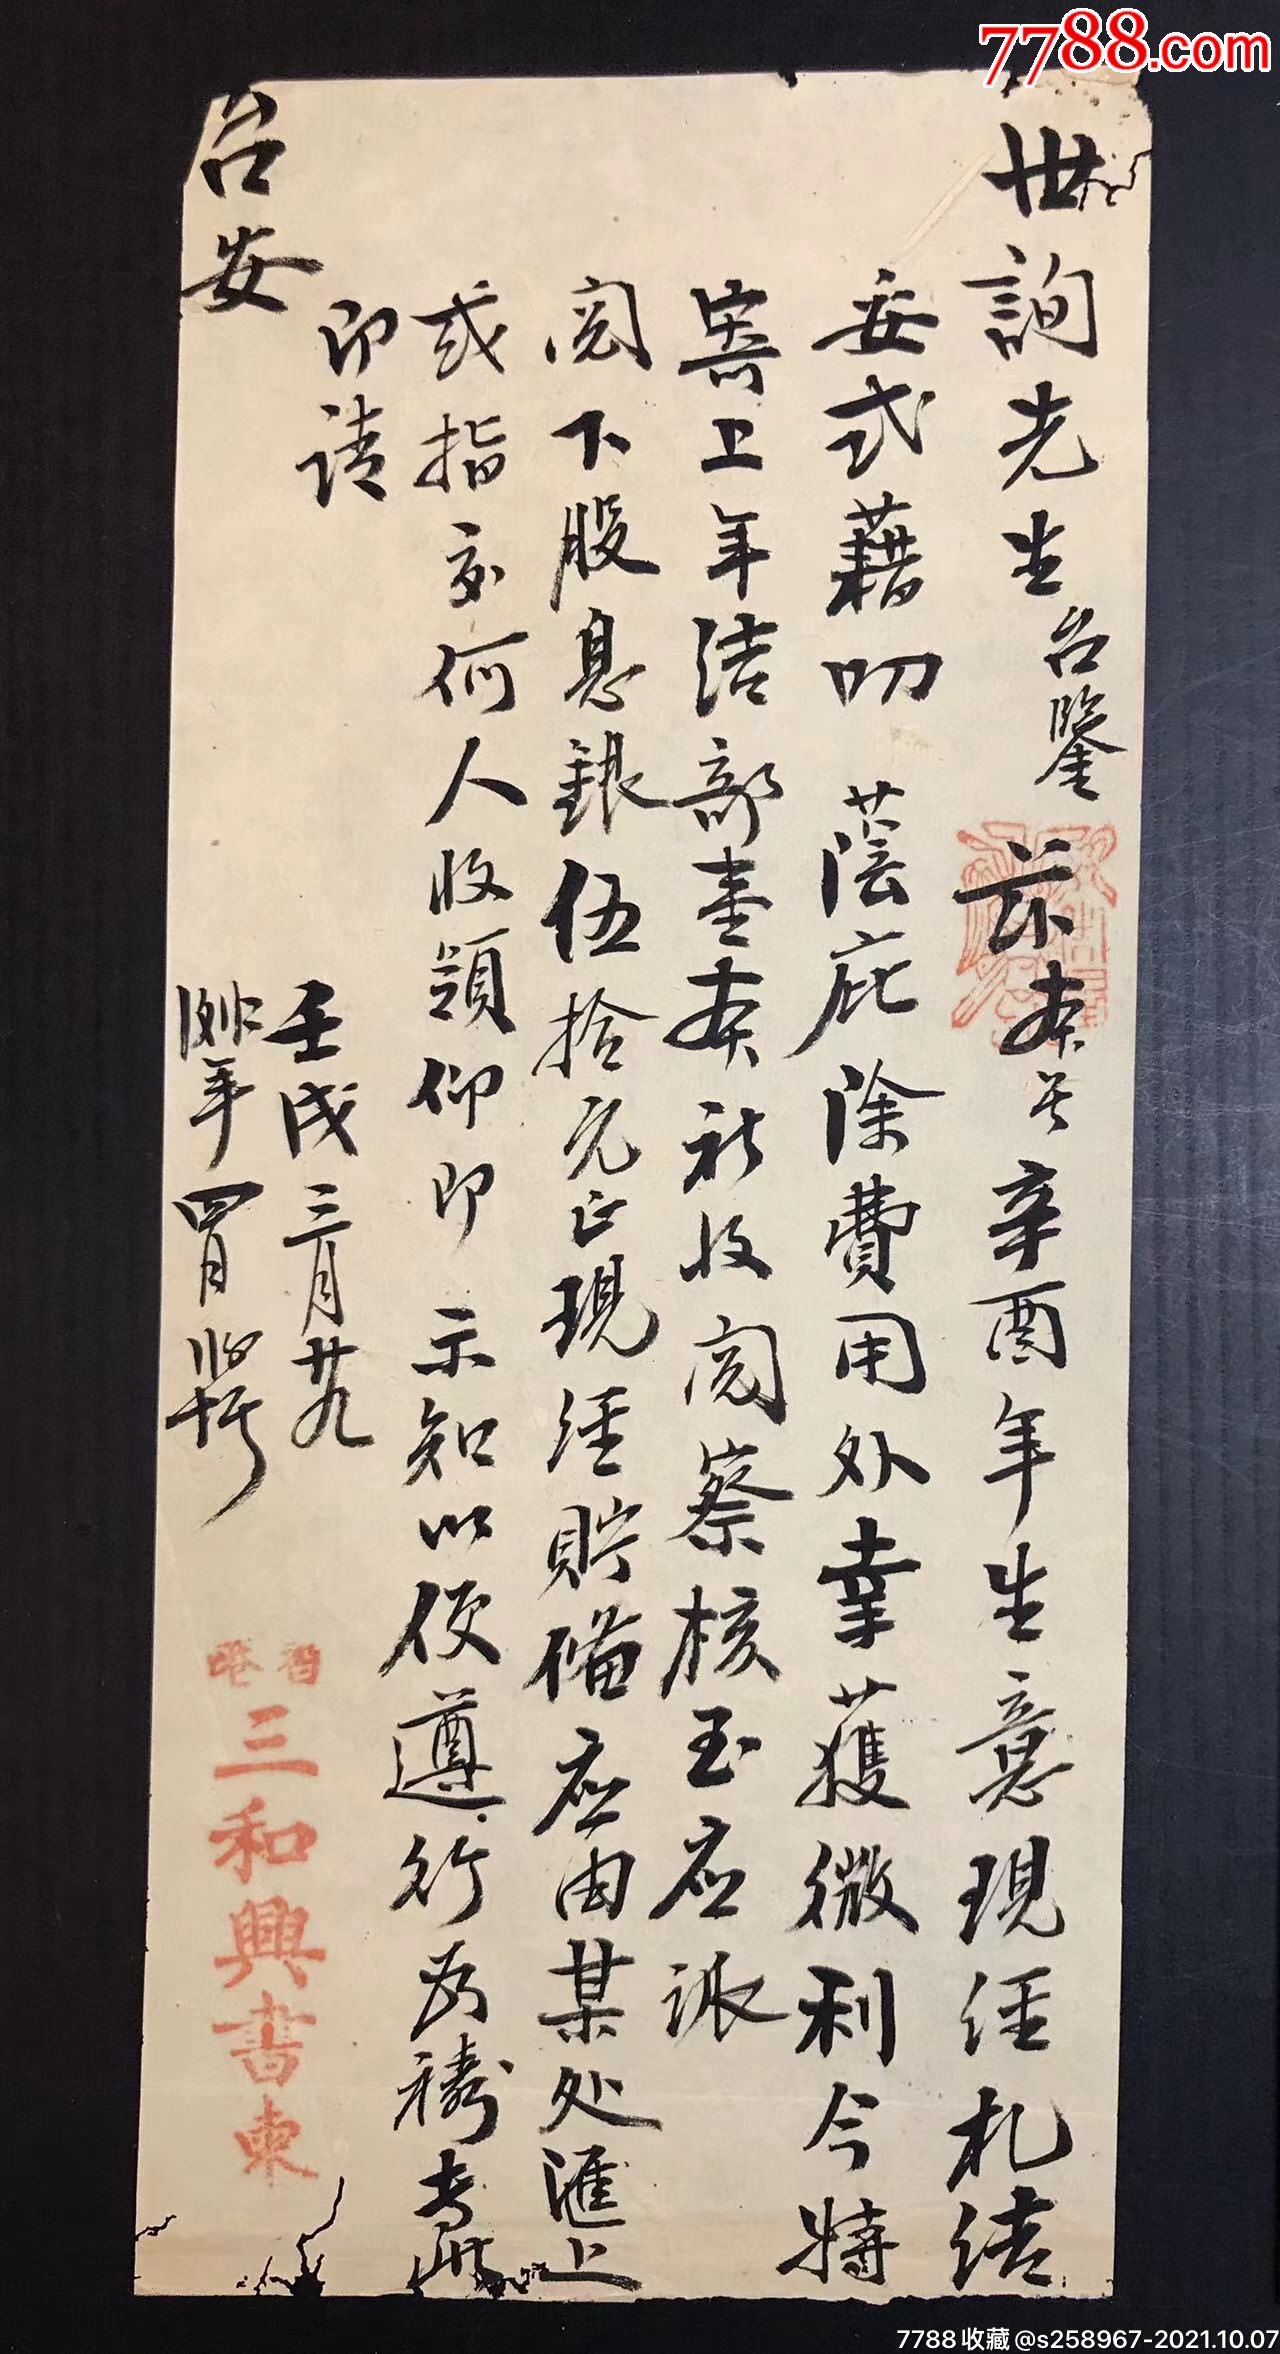 7788.com
世詢先生台鑒 茲本号辛酉年生意現經札結
妥式藉叨 蔭庇除費用外幸獲微利今特
寄上年結部壹本祈收閱察核至应派
閣下股息銀伍拾元正現經貯備应由某处滙上
或指交何人收領仰即 示知以便遵行為禱專此
即請
台安
壬戌三月廿九
年四月
香港
三和興書柬
7788收藏@s258967-2021.10.07